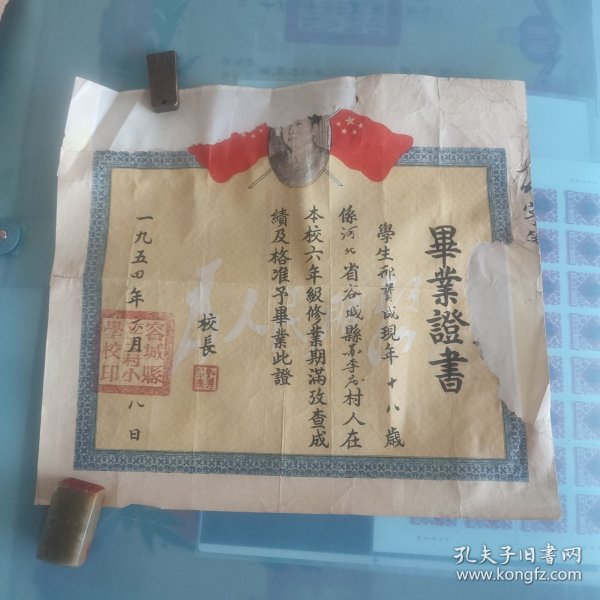 畢業證書
學生 現年十八歲
係河北省容城縣 李 村人在
本校六年級修業期滿攷查成
績及格准予畢業此證
校長
一九五四年 月 八日
容城縣
村小
學校印
孔夫子旧书网
www.kongfz.com